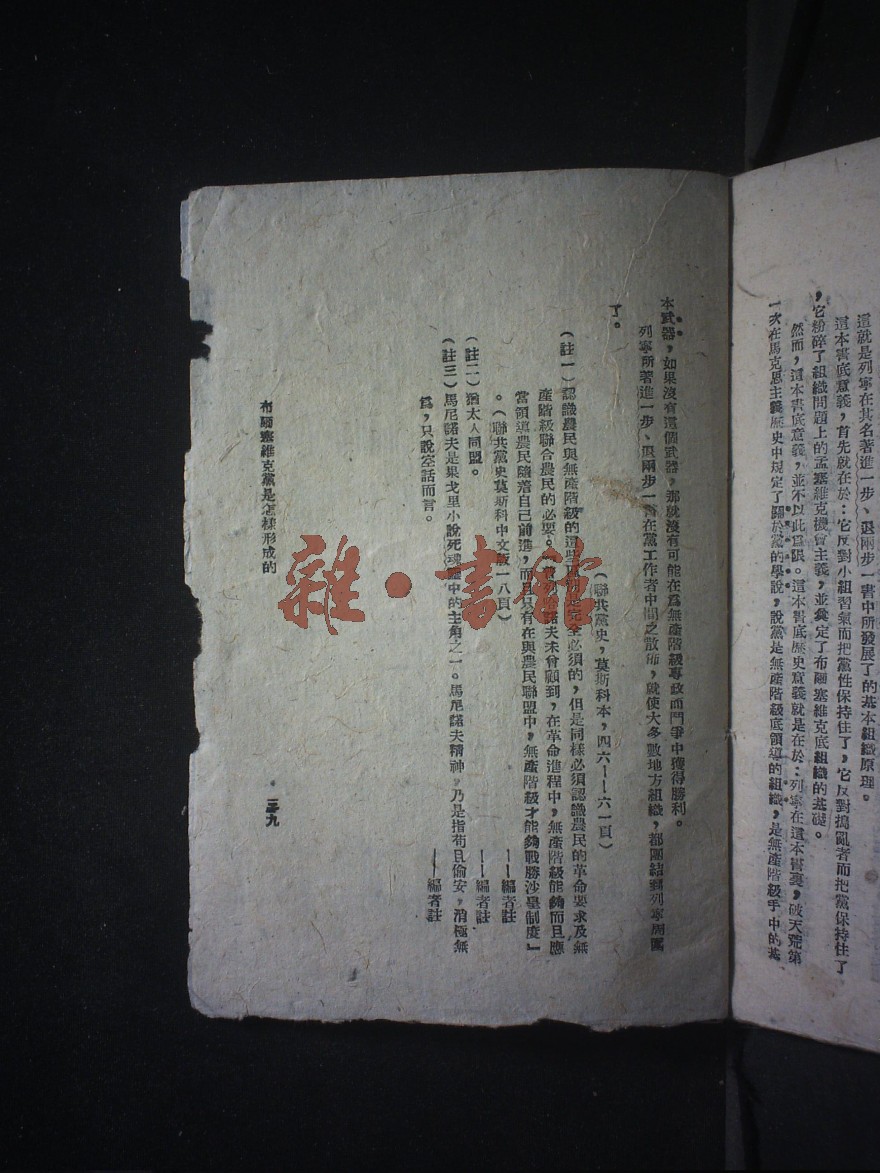 這就是列寧在其名著進一步、退兩步一書中所發展了的基本組織原理。
這本書底意義，首先就在於：它反對小組習氣而把黨性保持住了，它反對搗亂者而把黨保持住了
，它粉碎了組織問題上的孟塞維克機會主義，並奠定了布爾塞維克底組織的基礎。
然而，這本書底意義，並不以此爲限。這本書底歷史意義就是在於：列寧在這本書裏，破天荒第
一次在馬克思主義歷史中規定了關於黨的學說，說黨是無產階級底領導的組織，是無產階級手中的基
本武器，如果沒有這個武器，那就沒有可能在爲無產階級專政而鬥爭中獲得勝利。
列寧所著進一步、退兩步一書在黨工作者中間之散佈，就使大多數地方組織，都團結到列寧周圍
了。
（聯共黨史，莫斯科本，四六——六一頁）
（註一）認識農民與無產階級的這些是完全必須的，但是同樣必須認識農民的革命要求及無
產階級聯合農民的必要。諾夫未曾顧到，在革命進程中，無產階級能夠而且應
當領導農民隨着自己前進，而且只有在與農民聯盟中，無產階級才能夠戰勝沙皇制度」
。（聯共黨史莫斯科中文版一八頁）
——編者註
（註二）猶太人同盟。
——編者註
（註三）馬尼諾夫是果戈里小說死魂靈中的主角之一。馬尼諾夫精神，乃是指苟且偷安，消極無
爲，只說空話而言。
——編者註
布爾塞維克黨是怎樣形成的
三九
雜·書館